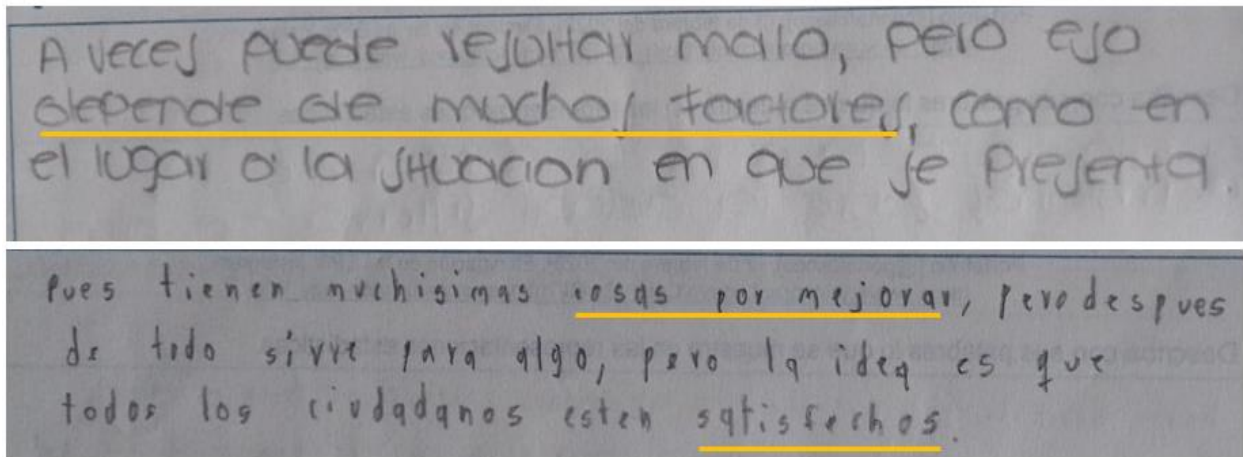 A veces puede resultar malo, pero eso
depende de muchos factores, como en
el lugar o la situacion en que se presenta.
Pues tienen muchisimas cosas por mejorar, pero despues
de todo sirve para algo, pero la idea es que
todos los ciudadanos esten satisfechos.